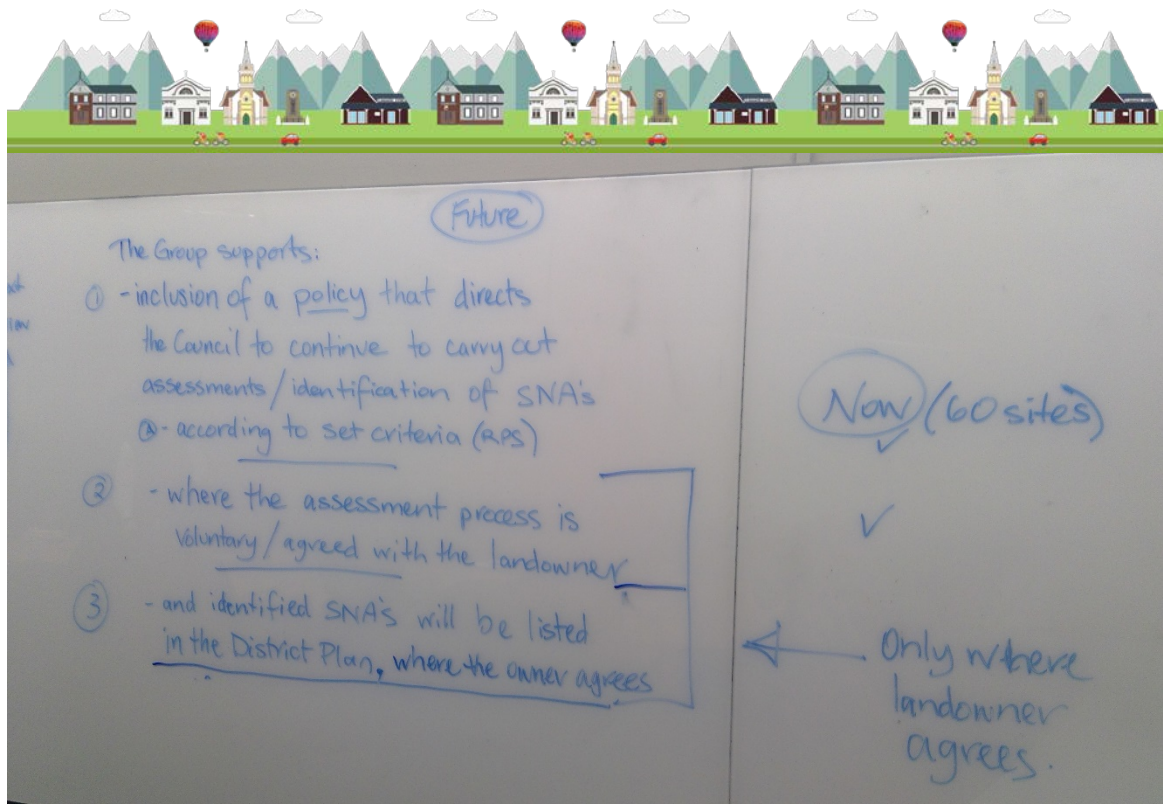 Future
The Group supports:
① - inclusion of a policy that directs
the Council to continue to carry out
assessments/identification of SNA's
Ⓐ - according to set criteria (RPS)
② - where the assessment process is
voluntary/agreed with the landowner
③ - and identified SNA's will be listed
in the District Plan, where the owner agrees
Now (60 sites)
✓
✓
Only where
landowner
agrees.